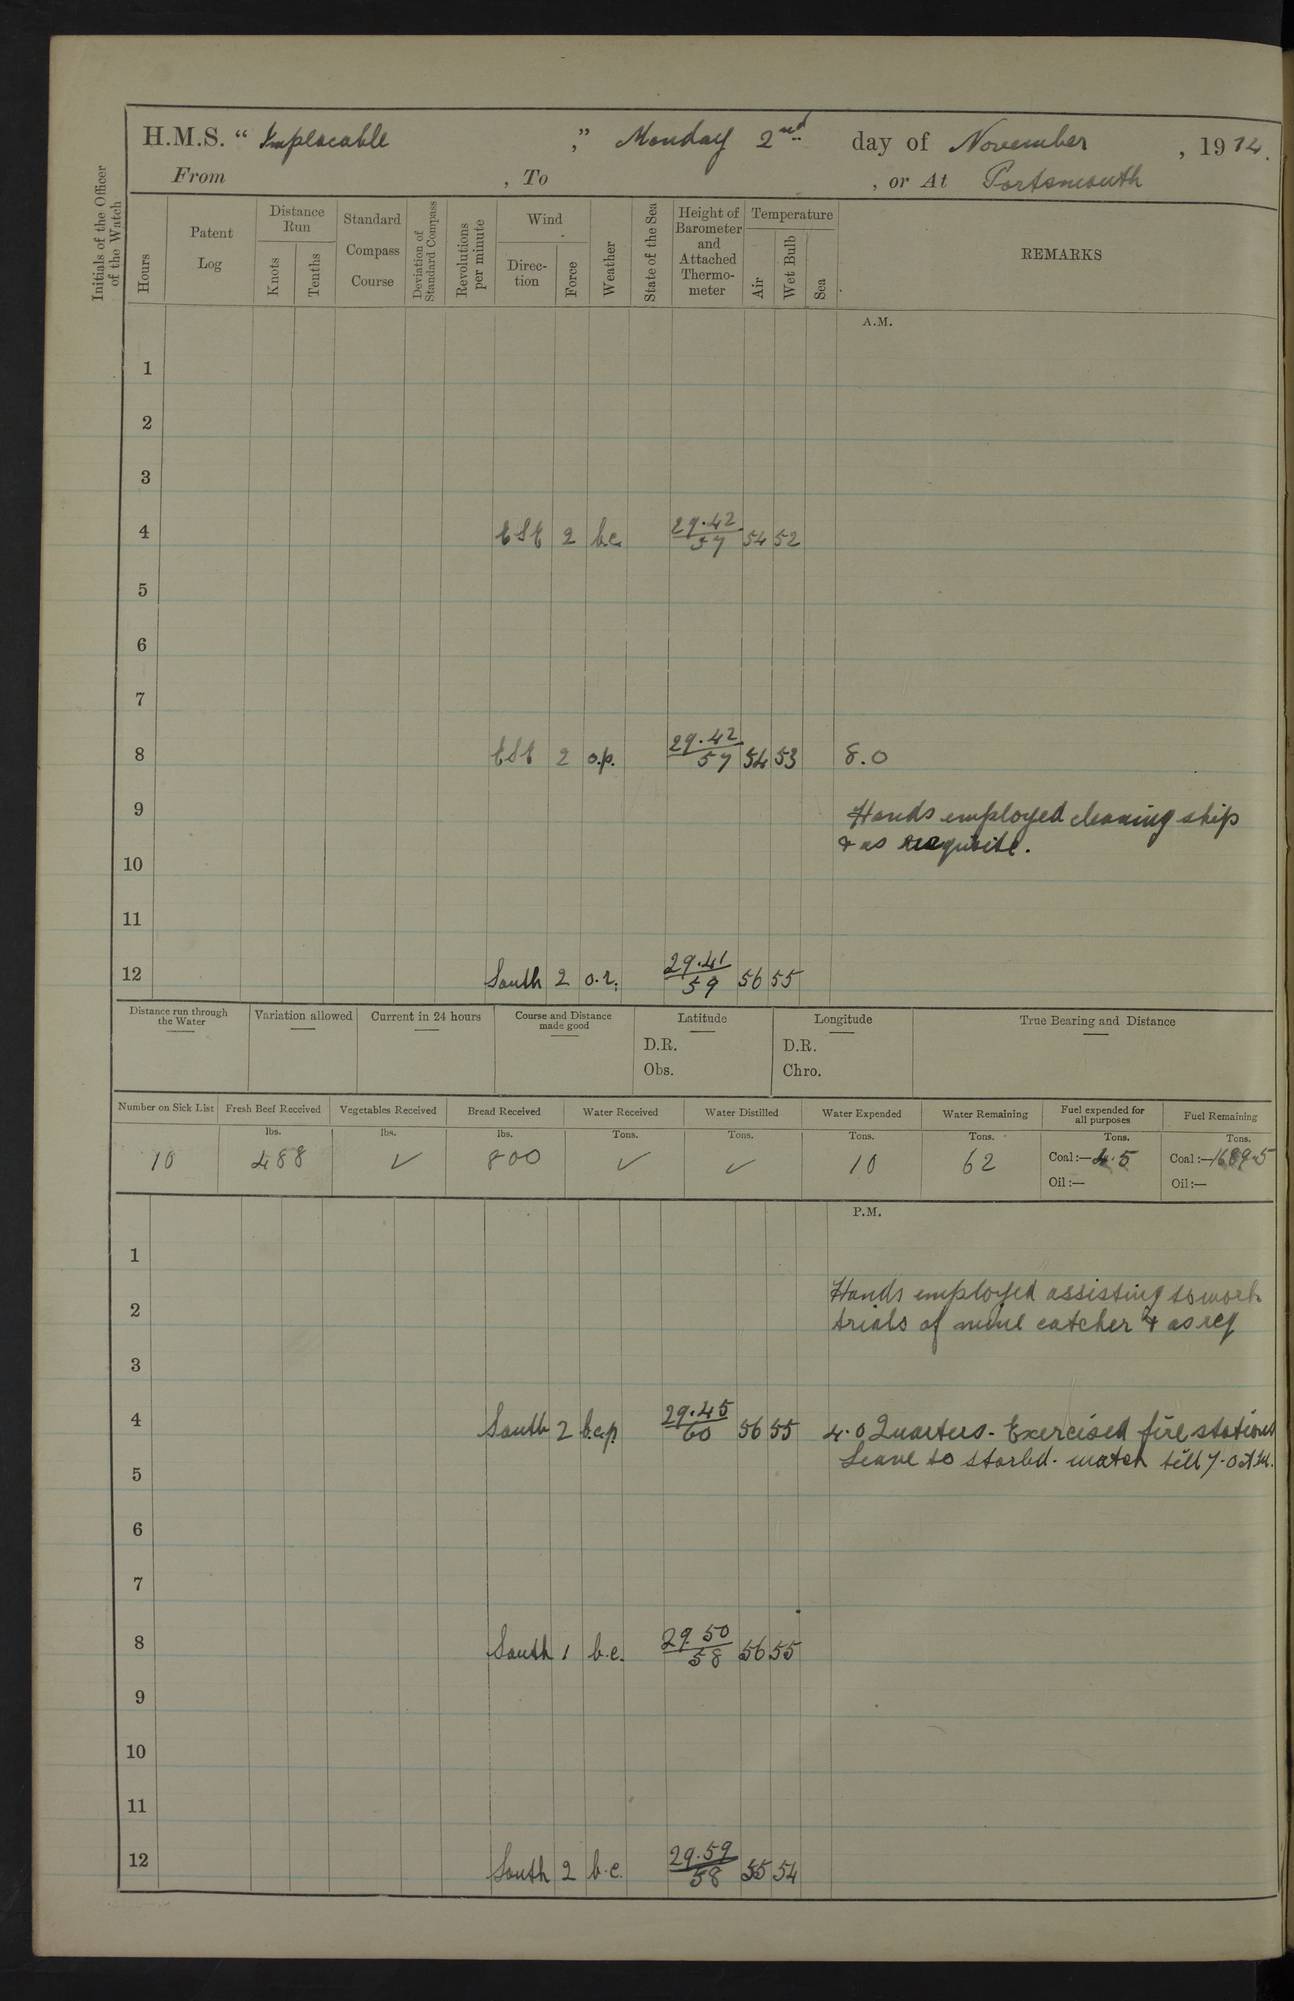 H.M.S. “ Implacable ,” Monday 2nd day of November , 1914.
From , To , or At Portsmouth
Initials of the Officer of the Watch
Hours
Patent Log
Distance Run
Knots
Tenths
Standard Compass Course
Deviation of Standard Compass
Revolutions per minute
Wind
Direc-tion
Force
Weather
State of the Sea
Height of Barometer and Attached Thermo-meter
Temperature
Air
Wet Bulb
Sea
REMARKS
A.M.
1
2
3
4 ESE 2 b.c. 29.42/57 54 52
5
6
7
8 ESE 2 o.p. 29.42/57 54 53 8.0
9 Hands employed cleaning ship
& as requisite.
10
11
12 South 2 o.r. 29.41/59 56 55
Distance run through the Water
Variation allowed
Current in 24 hours
Course and Distance made good
Latitude
D.R.
Obs.
Longitude
D.R.
Chro.
True Bearing and Distance
Number on Sick List
10
Fresh Beef Received
lbs.
488
Vegetables Received
lbs.
✓
Bread Received
lbs.
800
Water Received
Tons.
✓
Water Distilled
Tons.
✓
Water Expended
Tons.
10
Water Remaining
Tons.
62
Fuel expended for all purposes
Tons.
Coal :— 4.5
Oil :—
Fuel Remaining
Tons.
Coal :— 1689.5
Oil :—
P.M.
1
Hands employed assisting to work
2
trials of mine catcher & as req
3
4 South 2 b.c.p. 29.45/60 56 55 4.0 Quarters. Exercised fire stations
Leave to starbd. watch till 7.0
5
6
7
8 South 1 b.c. 29.50/58 56 55
9
10
11
12 South 2 b.c. 29.59/58 55 54